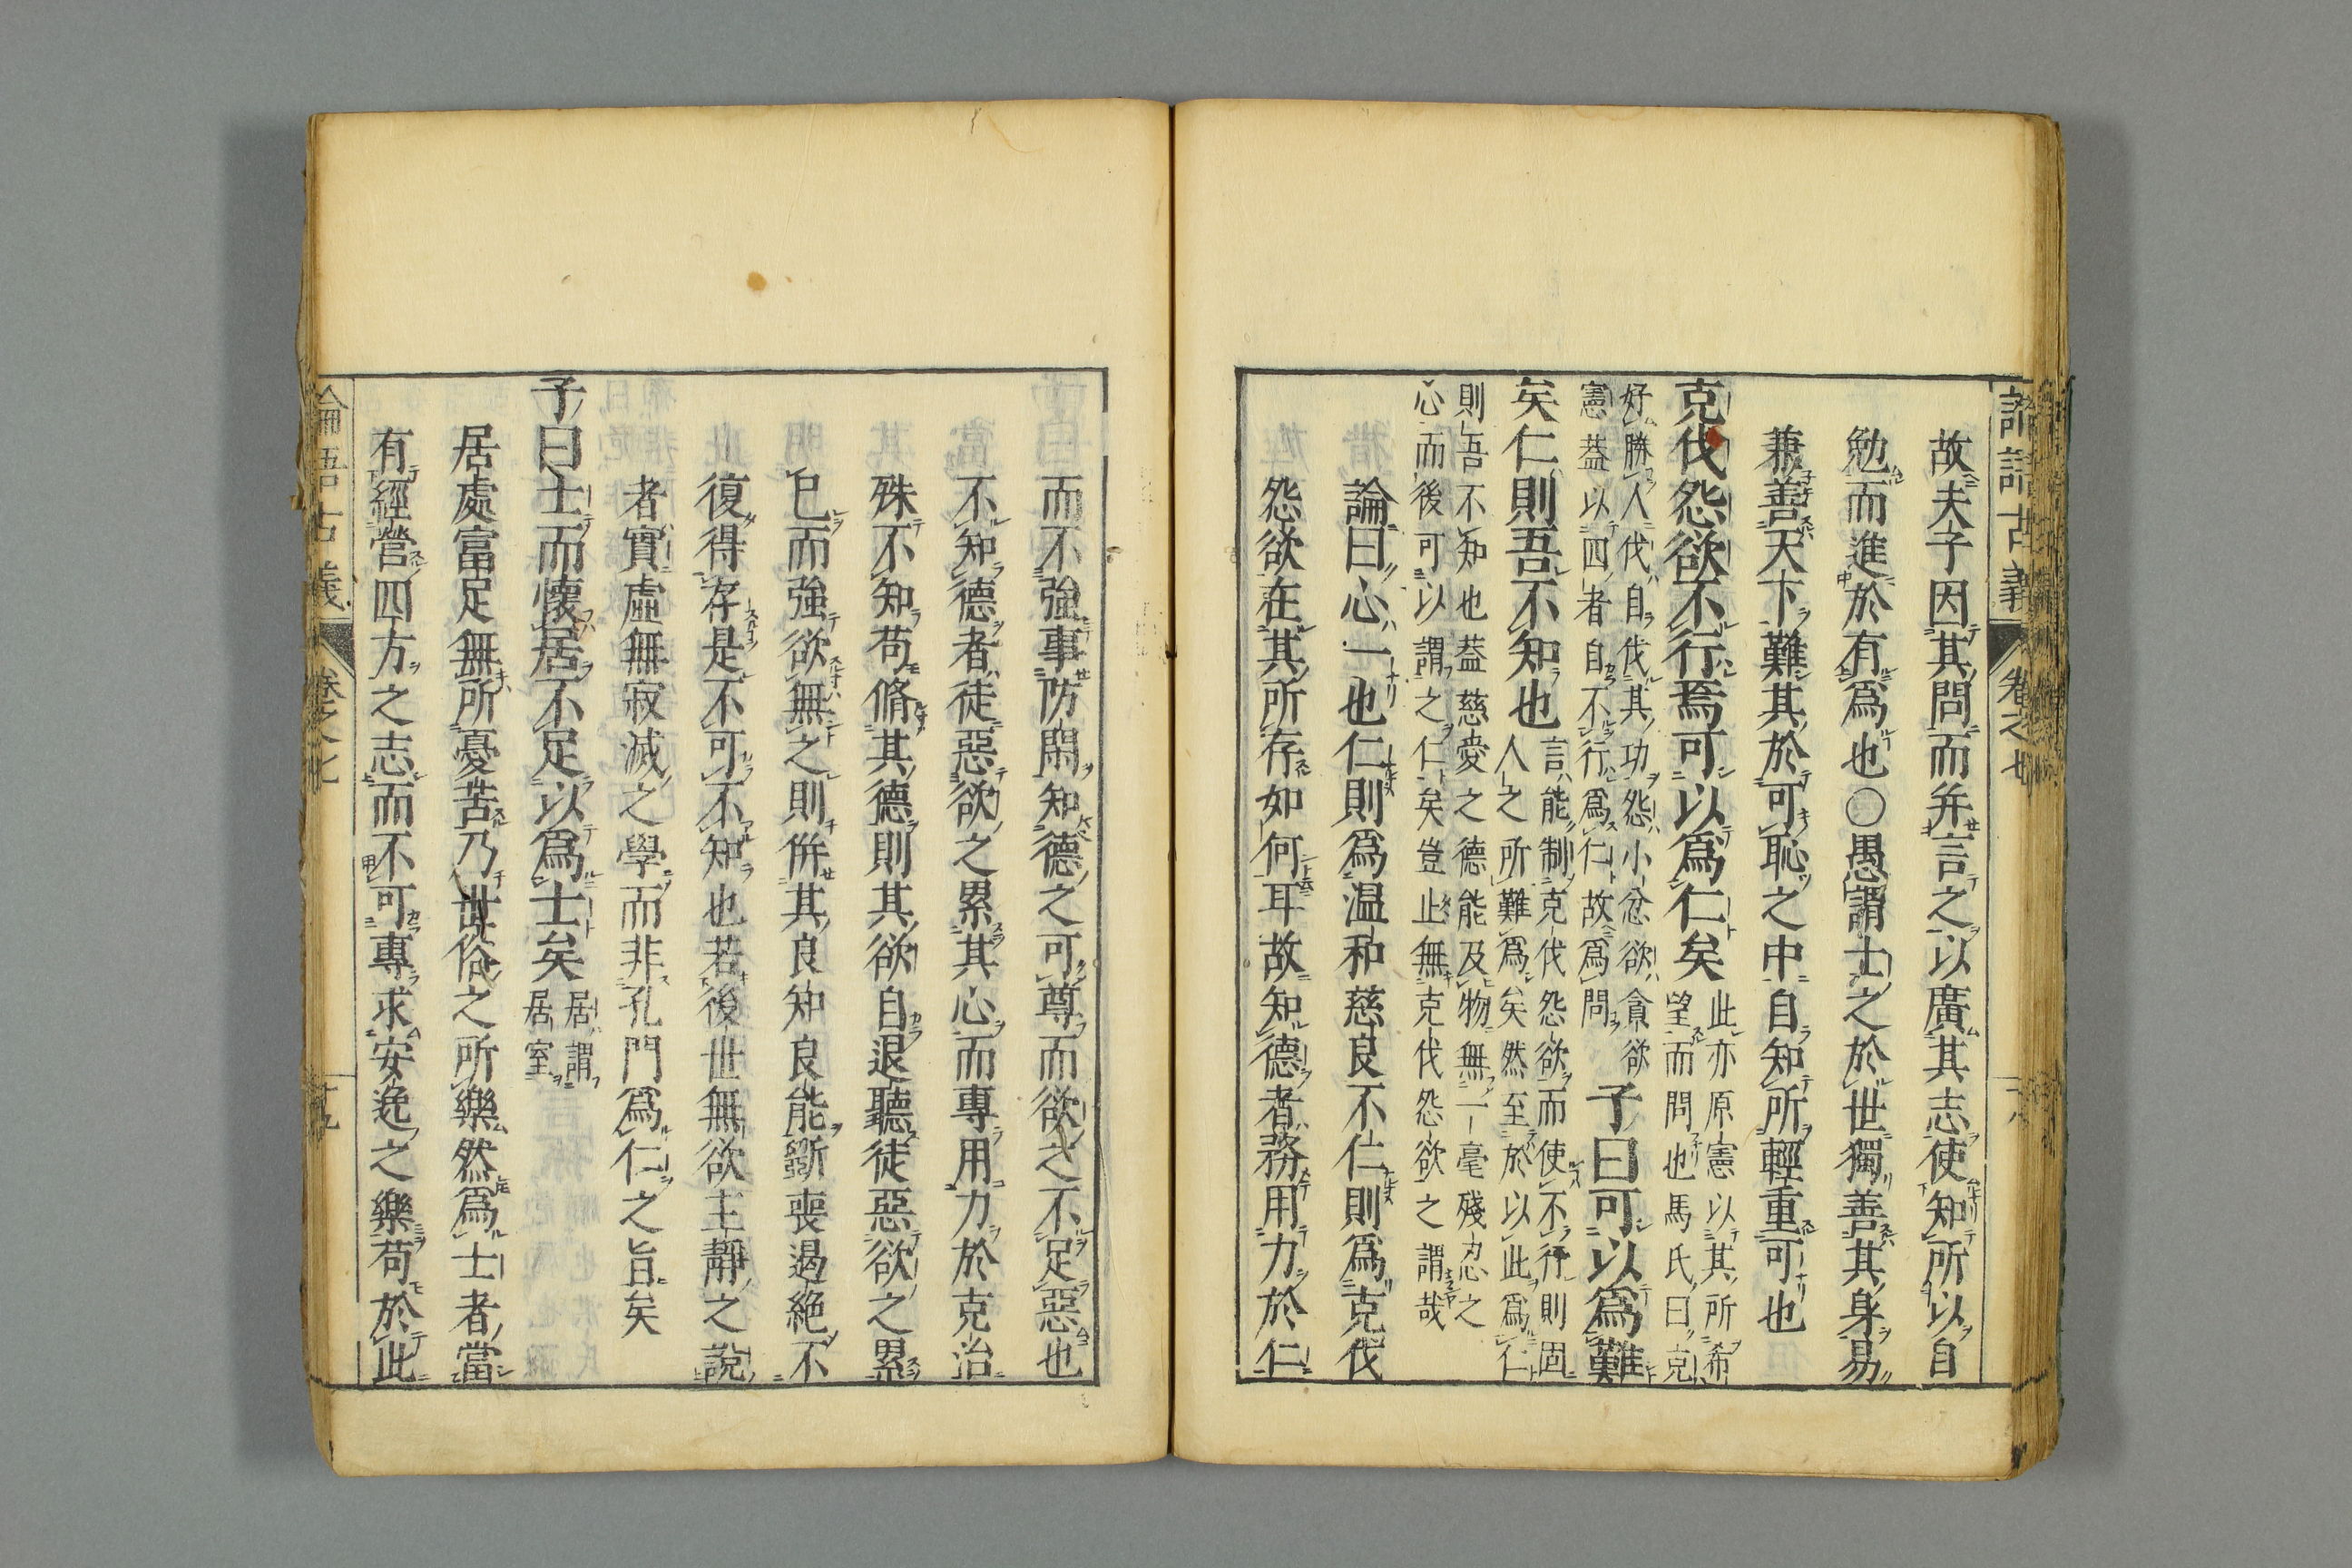 論語古義 卷之七 十八
故夫子因其問而并言之以廣其志使知所以自
勉而進於有爲也○愚謂士之於世獨善其身易
兼善天下難其於可恥之中自知所輕重可也
克伐怨欲不行焉可以爲仁矣此亦原憲以其所希
望而問也馬氏曰克
好勝人伐自伐其功怨小忿欲貪欲
憲葢以四者自不行爲仁故爲問
子曰可以爲難
矣仁則吾不知也言能制克伐怨欲而使不行則固
人之所難爲矣然至於以此爲仁
則吾不知也葢慈愛之德能及物無一毫殘忍之
心而後可以謂之仁矣豈止無克伐怨欲之謂哉
論曰心一也仁則爲温和慈良不仁則爲克伐
怨欲在其所存如何耳故知德者務用力於仁
而不強事防閑知德之可尊而欲之不足惡也
不知德者徒惡欲之累其心而專用力於克治
殊不知苟脩其德則其欲自退聽徒惡欲之累
已而強欲無之則併其良知良能斵喪遏絶不
復得存是不可不知也若後世無欲主靜之說
者實虛無寂滅之學而非孔門爲仁之旨矣
子曰士而懷居不足以爲士矣居謂
居室
居處富足無所憂苦乃世俗之所樂然爲士者當
有經營四方之志而不可專求安逸之樂苟於此
論語古義 卷之七 十九